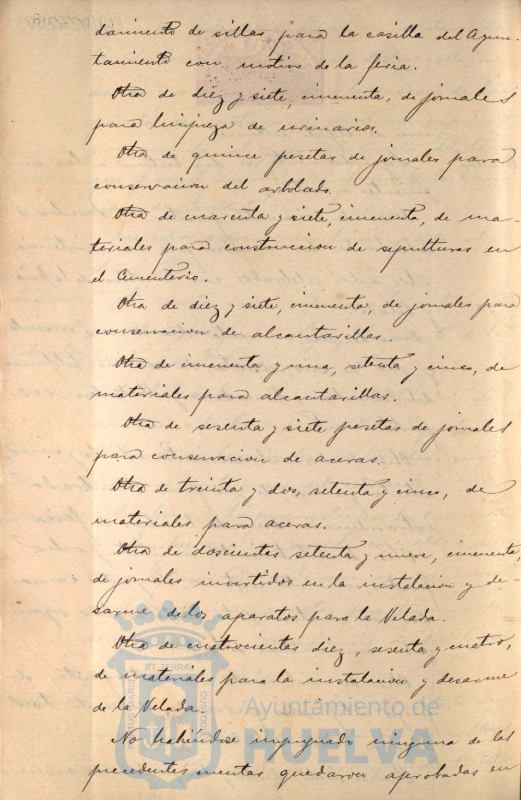 damiento de sillas para la casilla del Ayun-
tamiento con motivo de la feria.
Otra de diez y siete, cincuenta, de jornales
para limpieza de urinarios.
Otra de quince pesetas de jornales para
conservacion del arbolado.
Otra de cuarenta y siete, cincuenta, de ma-
teriales para construccion de sepulturas en
el Cementerio.
Otra de diez y siete, cincuenta, de jornales para
conservacion de alcantarillas.
Otra de cincuenta y una, setenta y cinco, de
materiales para alcantarillas.
Otra de sesenta y siete pesetas de jornales
para conservacion de aceras.
Otra de treinta y dos, setenta y cinco, de
materiales para aceras.
Otra de doscientas setenta y nueve, cincuenta,
de jornales invertidos en la instalacion y de-
sarme de los aparatos para la Velada.
Otra de cuatrocientas diez, sesenta y cuatro,
de materiales para la instalacion y desarme
de la Velada.
No habiéndose impugnado ninguna de las
precedentes cuentas quedaron aprobadas en
Ayuntamiento de
HUELVA